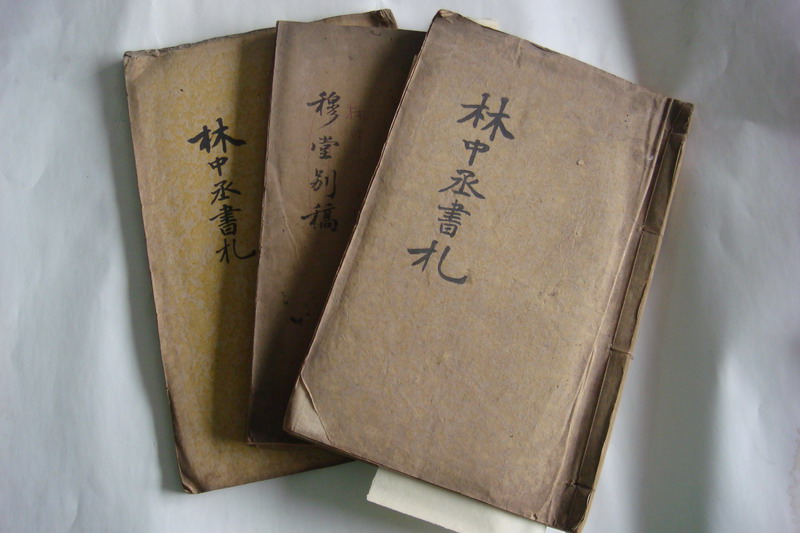 林中丞書札
穆堂別稿
林中丞書札